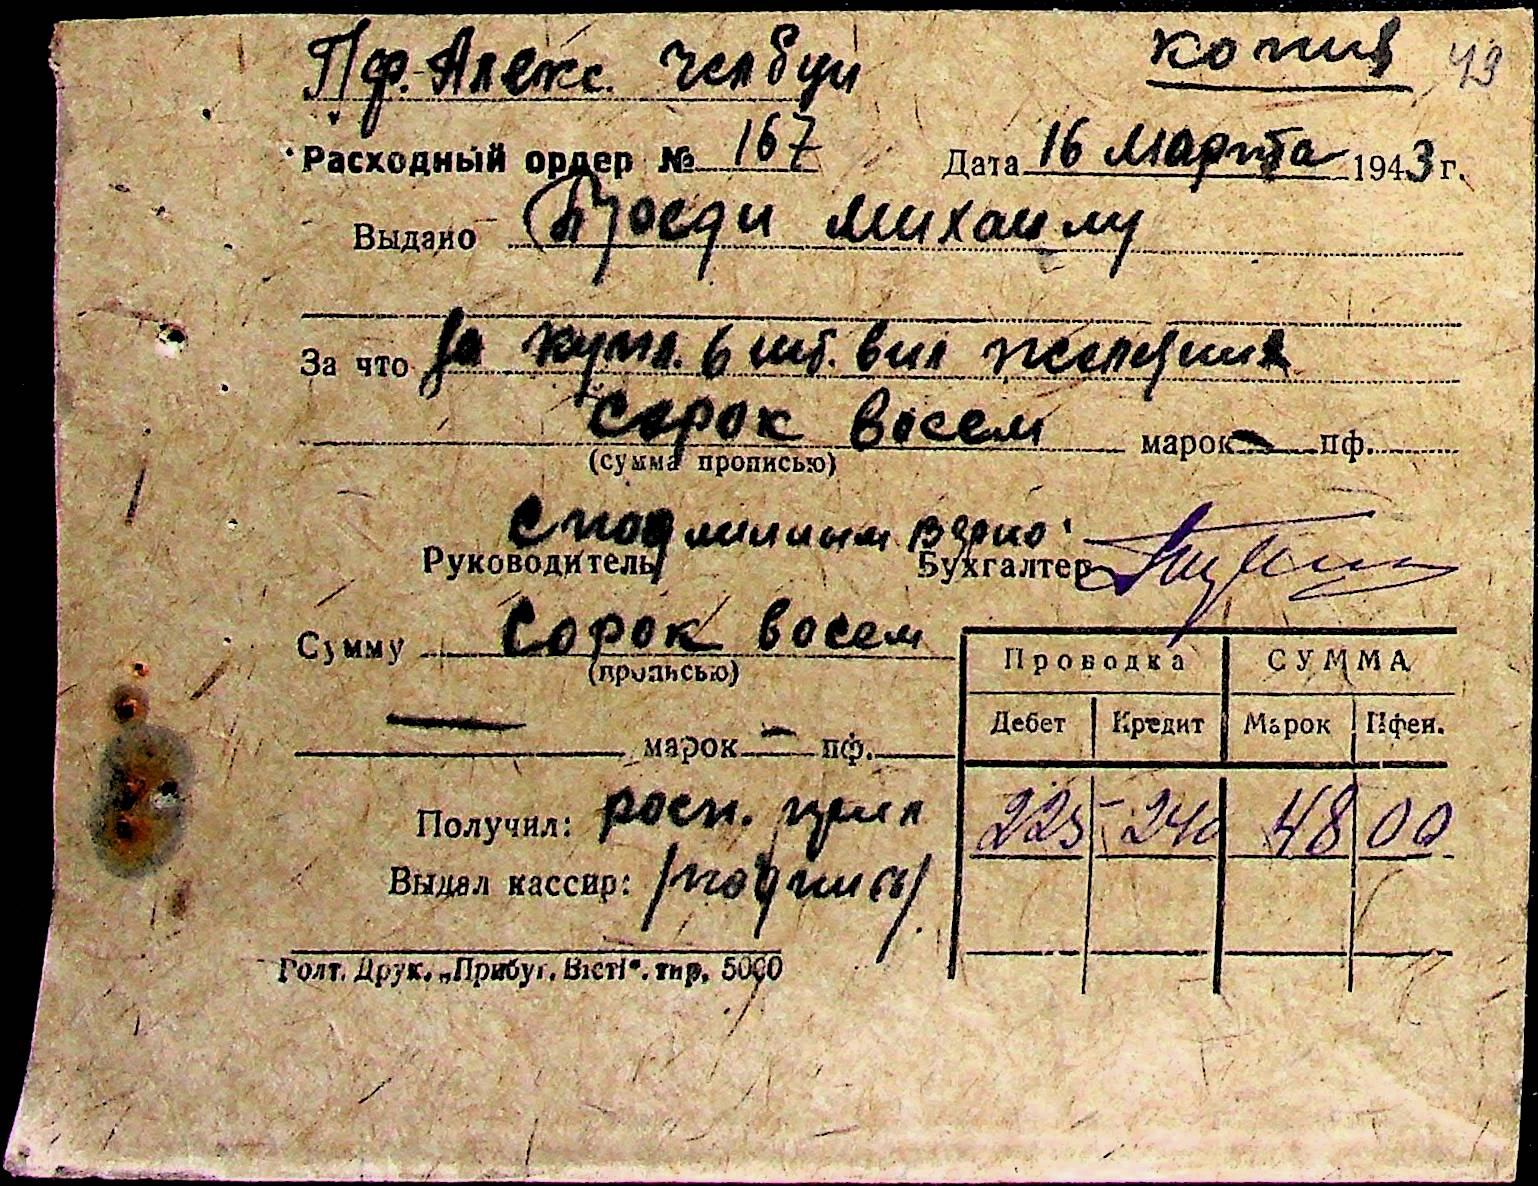 Пф. Алекс. копия 49
Расходный ордер № 167 Дата 16 Марта 1943 г.
Выдано Михаилу
За что за купл. 6 шт. вил
Сорок восем марок — пф.
(сумма прописью)
С подлинным верно:
Руководитель Бухгалтер
Сумму Сорок восем
(прописью)
— марок — пф.
Проводка СУММА
Дебет Кредит Марок Пфен.
225 - 240 48 00
Получил: росп.
Выдал кассир: /подпись/.
Голт. Друк. „Прибуг. Вісті". тир, 5000